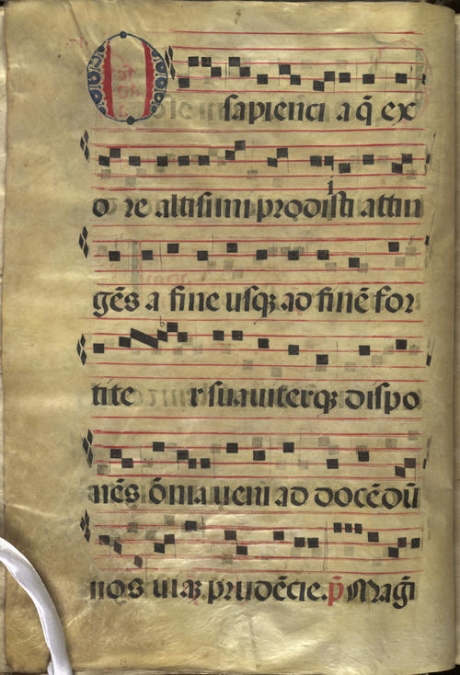 O sapienci a q̃ ex
o re altisimi prodisti attin
gẽs a fine usqꝫ ad finẽ for
tite r suauiterqꝫ dispo
nẽs õnia ueni ad docẽdũ
nos uiaꝫ prudẽcie. p̃ Magñ